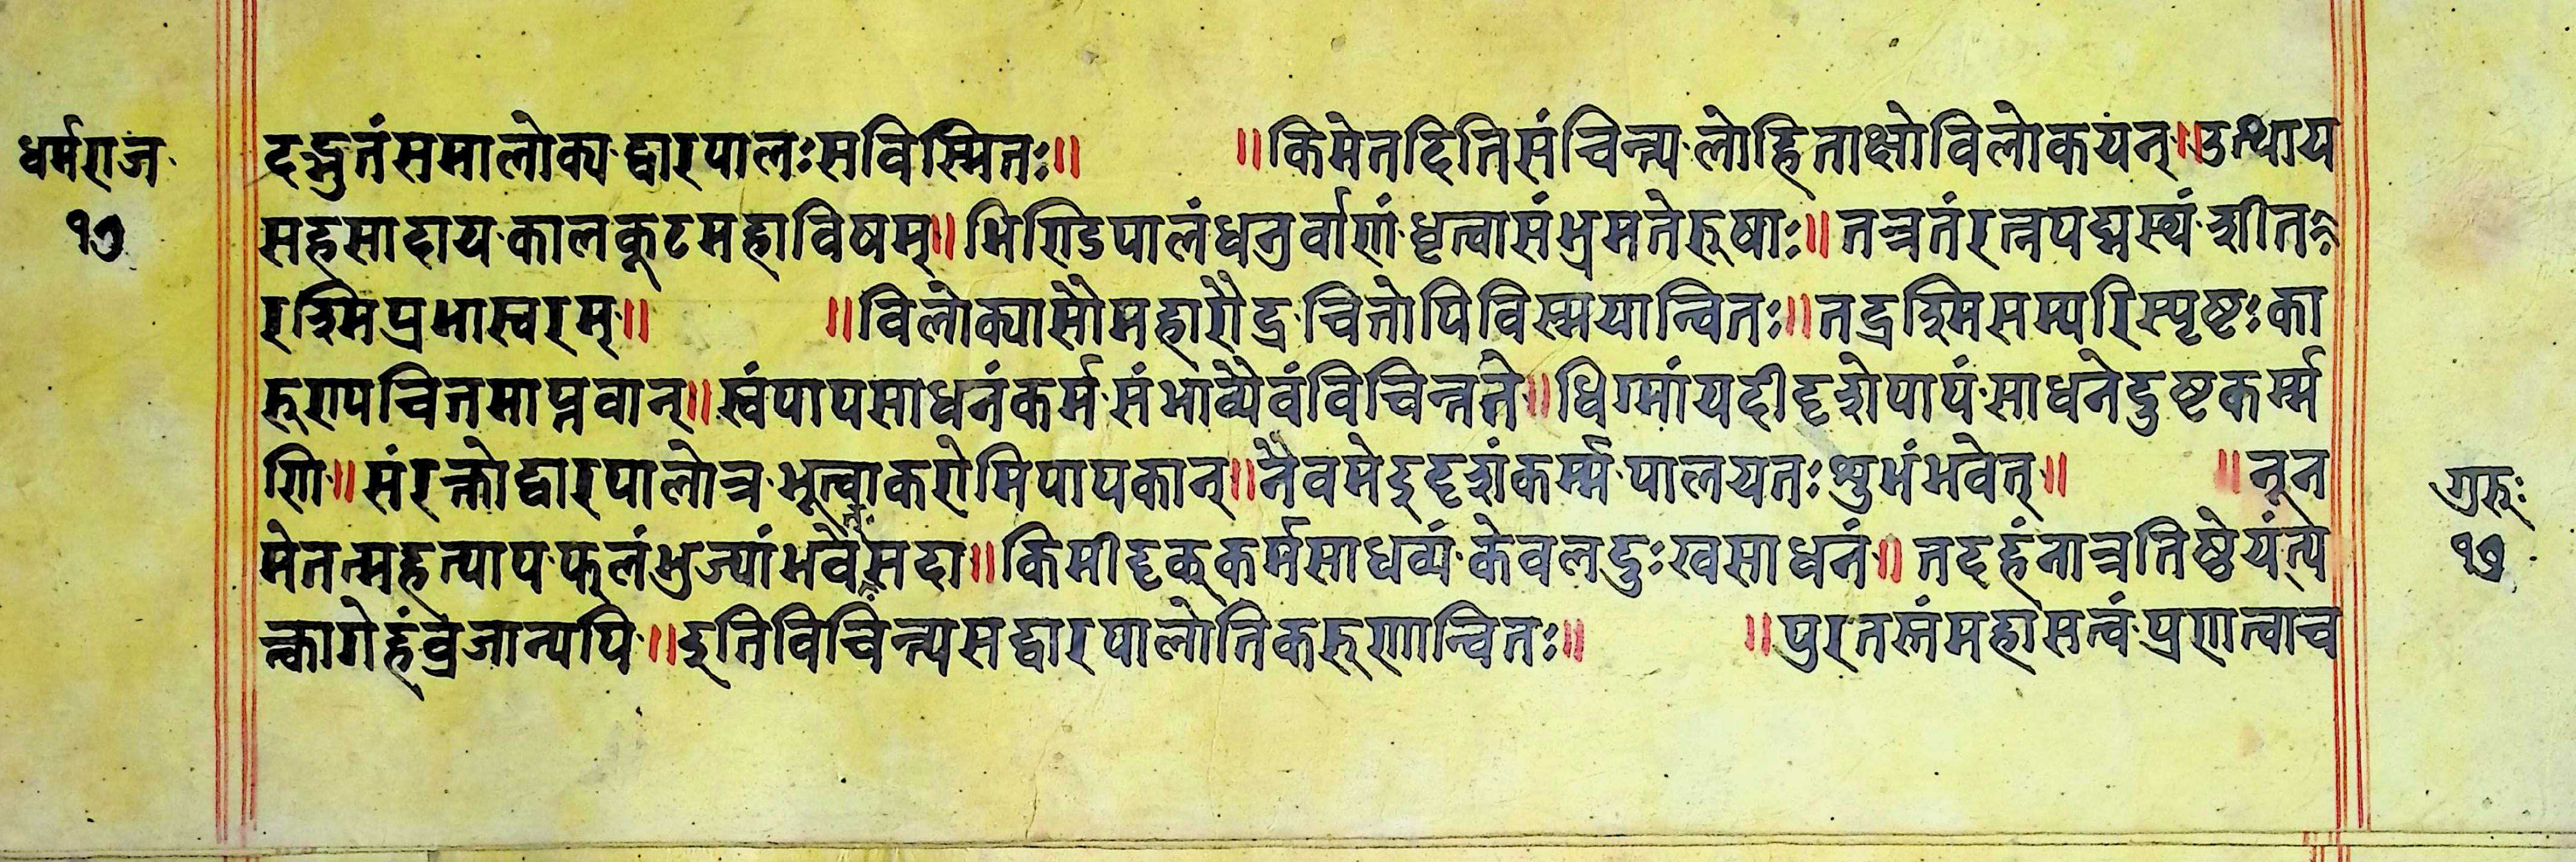 धर्मराज
१७
दद्भुतंसमालोक्य द्वारपालःसविस्मितः॥ ॥किमेतदितिसंचिन्त्य लोहिताक्षोविलोकयन्॥उत्थाय
सहसादाय कालकूटमहाविषम्॥भिण्डिपालंधनुर्वाणं धृत्वासंभ्रमतेरूषाः॥तत्रतंरत्नपद्मस्थं शीत
रश्मिप्रभास्वरम्॥ ॥विलोक्यासौमहारौद्र चित्तोपिविस्मयान्वितः॥तद्रश्मिसम्परिस्पृष्टःका
रूणचित्तमाप्नवान्॥स्वंपापसाधनंकर्म संभाव्यैवंविचिन्तते॥धिग्मांयदीदृशेपापं साधनेदुष्टकर्म्म
णि॥संरक्तोद्वारपालोत्र भूत्वाकरोमिपापकान्॥नैवमेइदृशंकर्म्म पालयतःशुभंभवेत्॥ ॥नून
मेतत्महत्पाप फलंभुज्यांभवेसदा॥किमीदृक्कर्मसाधव्यं केवलदुःखसाधनं॥तदहंनात्रतिष्ठेयंत्य
त्कागेहंव्रजान्यपि॥इतिविचिन्त्यसद्वारपालोतिकरूणान्वितः॥ ॥पुरतस्तंमहासत्वं प्रणत्वाच
गुरूः
१७